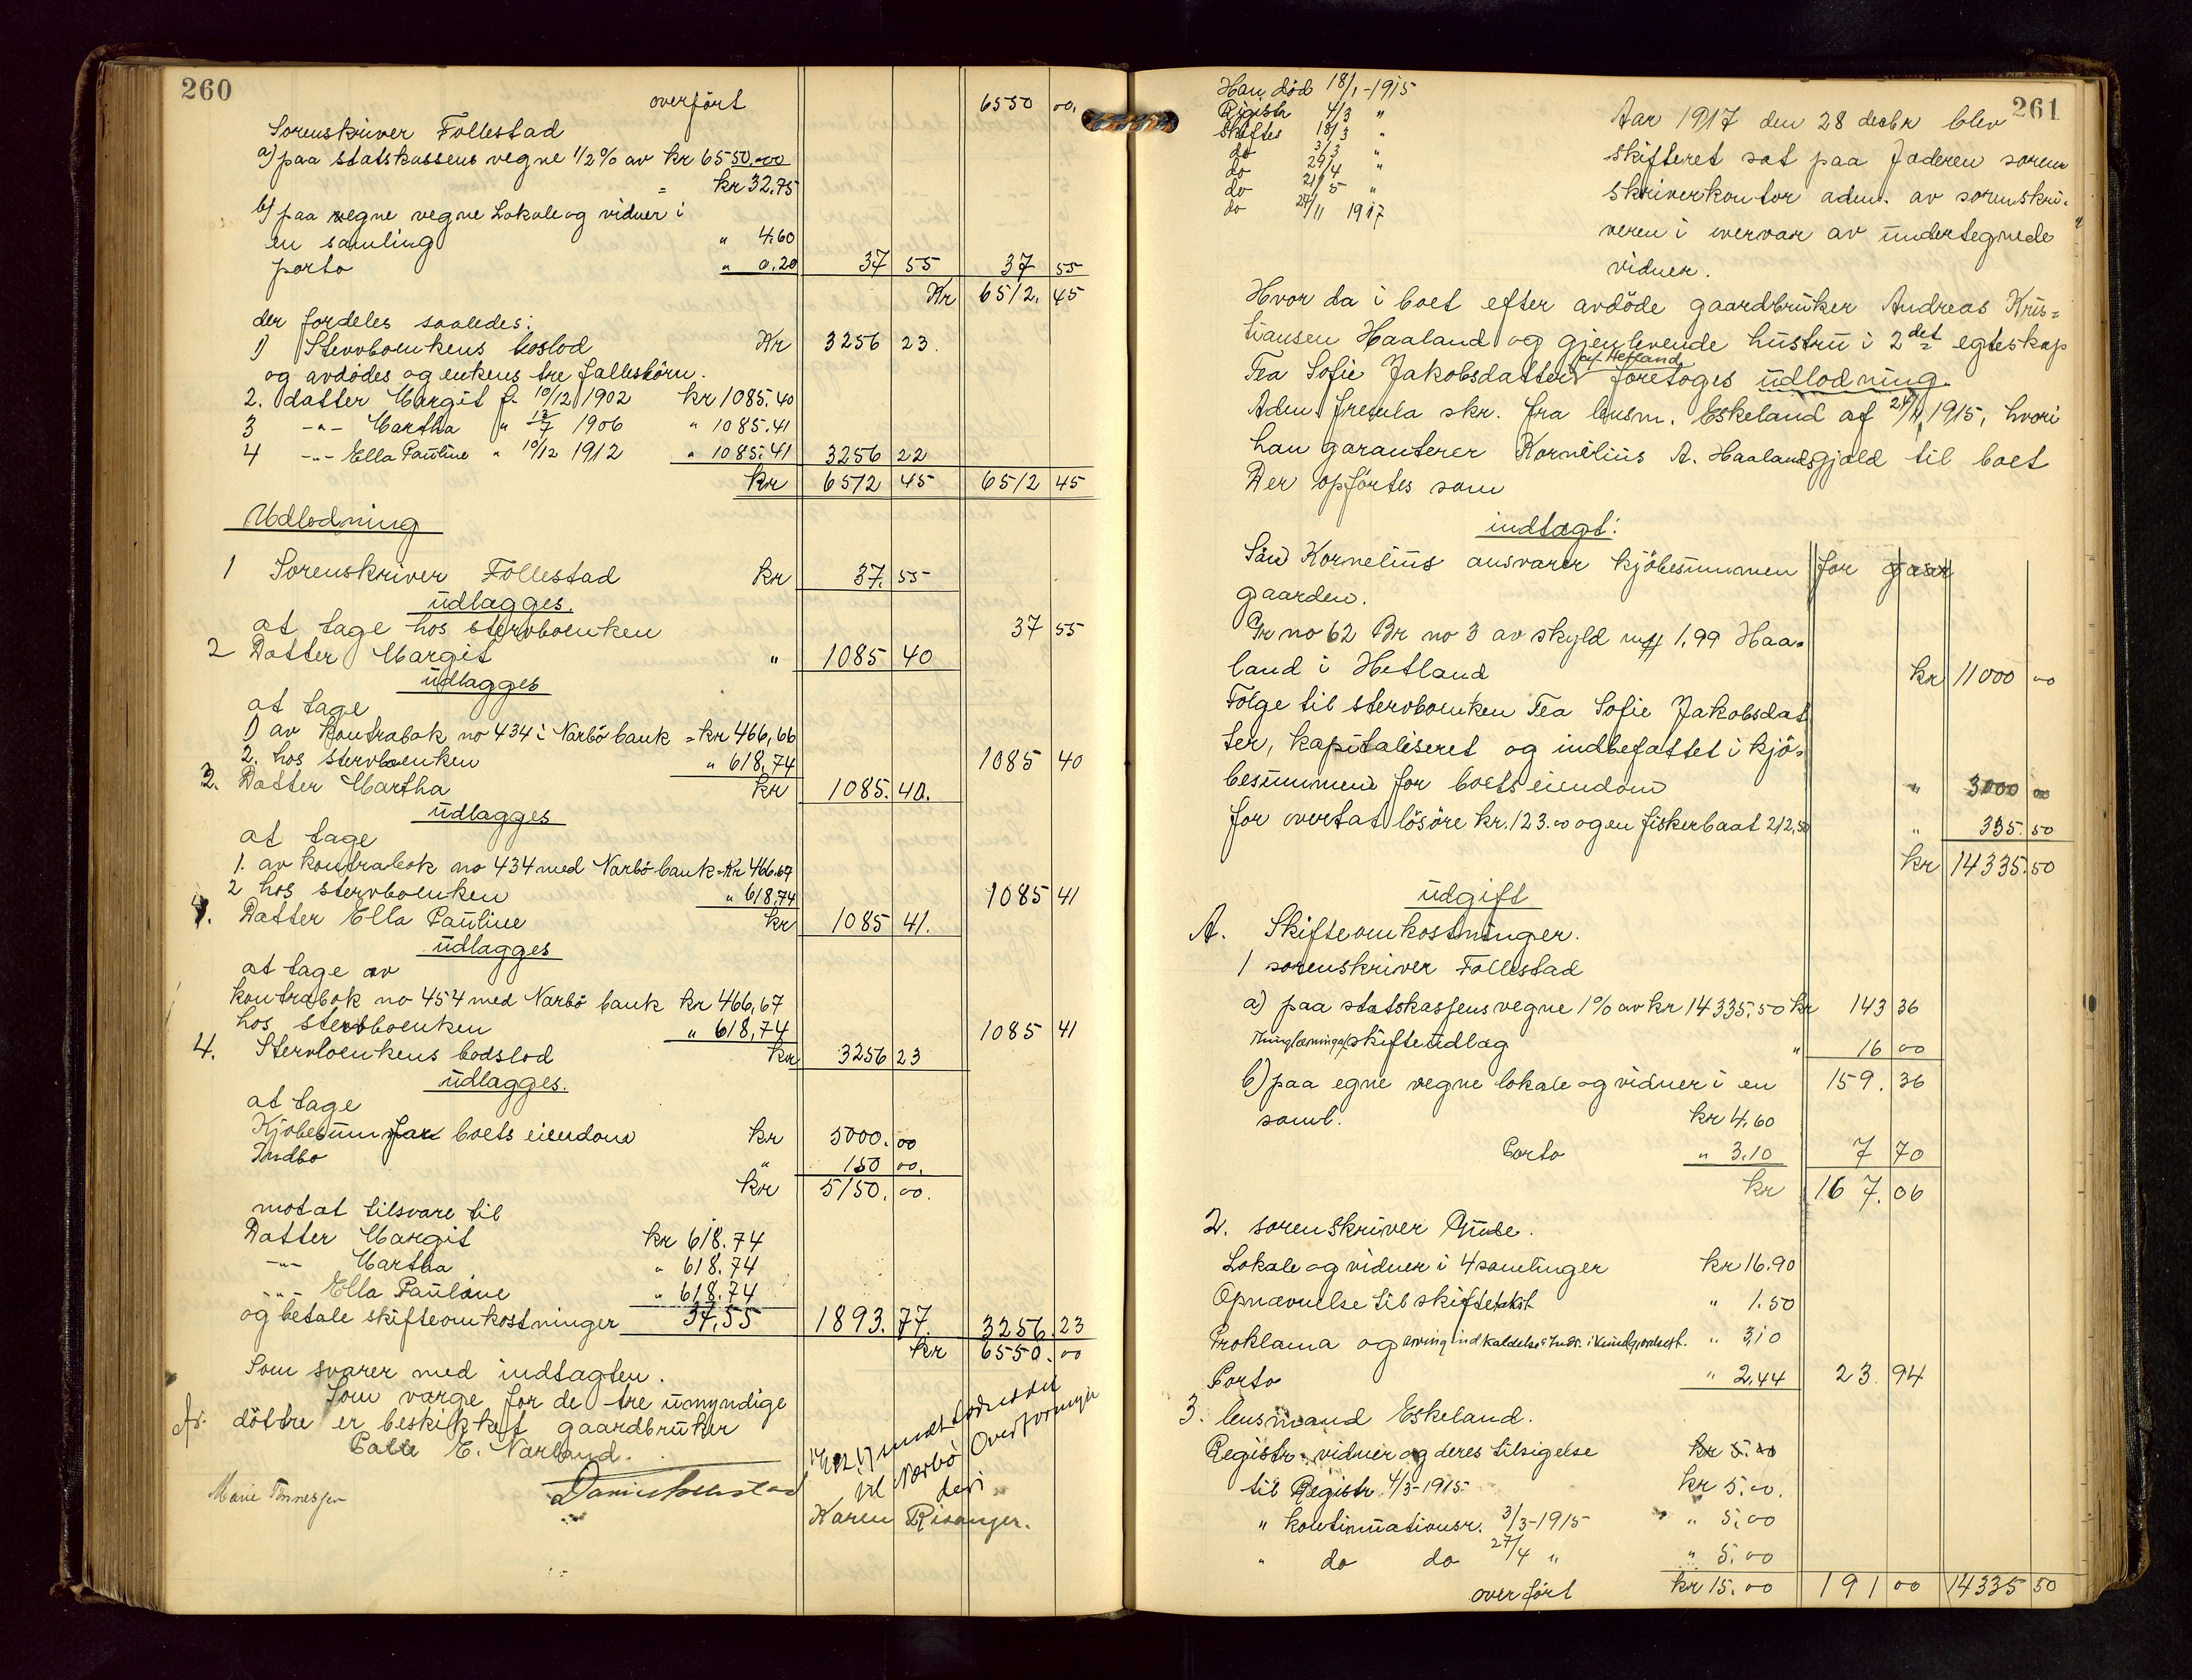 260
overført 6550 00.
Sorenskriver Follestad
a) paa statskassens vegne 1/2 % av kr 6550.00
= kr 32.75
b) paa vegne vegne Lokale og vidner i
en samling " 4.60
porto " 0.20 37 55 37 55
Kr 6512. 45
der fordeles saaledes:
1) Stervboenkens boslod Kr 3256 23.
og avdødes og enkens tre fællesbørn.
2. datter Margit f. 10/12 1902 kr 1085.40
3 -"- Martha " 13/7 1906 " 1085.41
4 -"- Ella Pauline " 10/12 1912 " 1085.41 3256 22
kr 6512 45 6512 45
Udlodning
1 Sorenskriver Follestad kr 37. 55
udlægges.
at tage hos stervboenken 37 55
2 Datter Margit " 1085 40
udlægges
at tage
1) av Kontrabok no 434 i Nærbö bank = kr 466,66
2. hos stervboenken " 618,74 1085 40
3. Datter Martha kr 1085. 40.
udlægges
at tage
1. av kontrabok no 434 med Nærbö bank = Kr 466.67
2 hos stervboenken " 618,74 1085 41
4. Datter Ella Pauline kr 1085 41.
udlægges
at tage av
kontrabok no 454 med Nærbö bank kr 466,67
hos stervboenken " 618,74 1085 41
4. Stervboenkens bodslod kr 3256 23
udlægges.
at tage
Kjøbesum for boets eiendom kr 5000. 00
Indbo " 150 00.
kr 5150. 00.
mot at tilsvare til
Datter Margit kr 618.74
-"- Martha " 618.74
-"- Ella Pauline " 618.74
og betale skifteomkostninger 37,55 1893. 77. 3256. 23
kr 6550. 00
Som svarer med indtægten.
Som værge for de tre umyndige
døttre er beskikket gaardbruker
E. Nærland.
til Nærbö Overformynderi
Marie Tønnesen
Karen Risanger.
261
Han død 18/1-1915
Registr 4/3 "
Skiftes 18/3 "
do 3/3 "
do 29/4 "
do 21/5 "
do 27/11 1917
Aar 1917 den 28 decbr blev
skifteret sat paa Jæderen soren
skriverkontor adm. av sorenskri-
veren i overvær av undertegnede
vidner.
Hvor da i boet efter avdöde gaardbruker Andreas Kris=
tiansen Haaland og gjenlevende hustru i 2det egteskap
af Hetland
Tea Sofie Jakobsdatter foretoges udlodning.
Adm. fremla skr. fra lensm. Eskeland af 27/11 1915, hvori
han garanterer Kornelius A. Haalands gjæld til boet
Der opförtes som
indtægt:
Søn Kornelius ansvarer kjöbesummen for gaar
gaarden.
Gr no 62 Br no 3 av skyld mark 1,99 Haa=
land i Hetland kr 11000 00
Følge til stervboenken Tea Sofie Jakobsdat
ter, kapitaliseret og indbefattet i kjö=
besummen for boets eiendom " 3000 00
for overtat løsøre kr. 123.00 og en fiskerbaat 212,50 " 335. 50
kr 14335. 50
udgift
A. Skifteomkostninger.
1 sorenskriver Follestad
a) paa statskassens vegne 1% av kr 14335.50 kr 143 36
skifteudlæg " 16 00
b) paa egne vegne lokale og vidner i en 159. 36
saml. kr 4.60
Porto " 3.10 7 70
kr 167. 06
2. sorenskriver Gude.
Lokale og vidner i 4 samlinger kr 16.90
Opnævnelse til skiftetakst " 1.50
Proklama og arvingindkaldelse 3,10
Porto " 2,44 23. 94
3. lensmand Eskeland.
Registr. vidner og deres tilsigelse kr 5.00
til Registr 4/3-1915 kr 5.00.
" kontinuationsr. 3/3-1915 " 5.00
" do do 27/4 " " 5.00
overført kr 15.00 191 00 14335 50